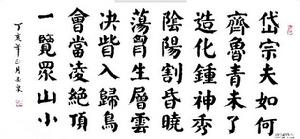 岱宗夫如何
齊魯青未了
造化鍾神秀
陰陽割昏曉
蕩胷生層雲
決眥入歸鳥
會當凌絕頂
一覽眾山小
丁亥年